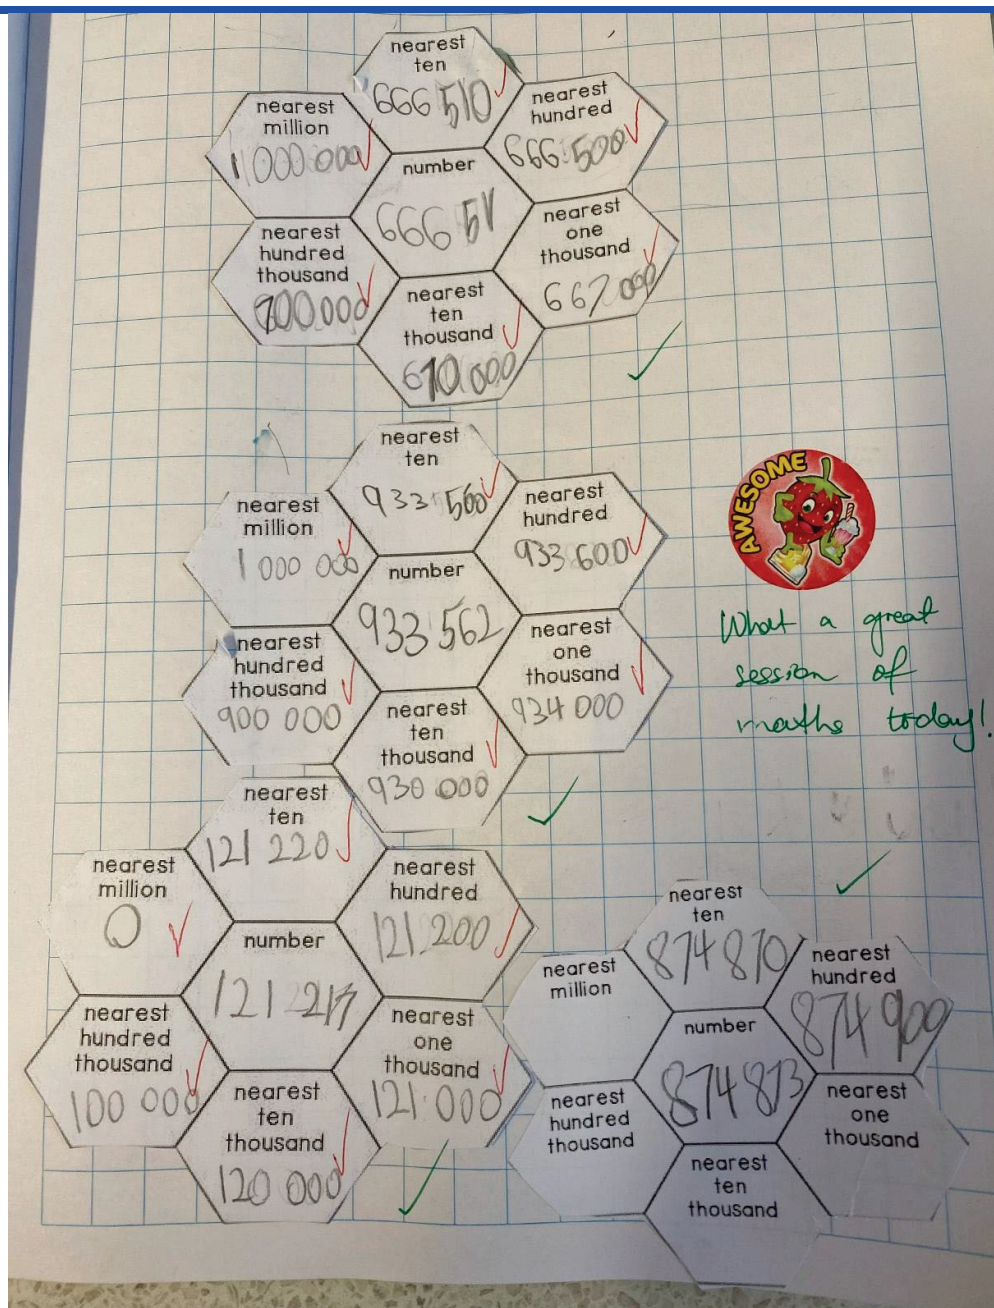 nearest
ten
666 510
nearest
million
1 000 000
nearest
hundred
666 500
number
666 511
nearest
hundred
thousand
700 000
nearest
one
thousand
667 000
nearest
ten
thousand
670 000
nearest
ten
933 560
nearest
million
1 000 000
nearest
hundred
933 600
number
933 562
nearest
hundred
thousand
900 000
nearest
one
thousand
934 000
nearest
ten
thousand
930 000
AWESOME
What a great
session of
maths today!
nearest
ten
121 220
nearest
million
0
nearest
hundred
121 200
number
121 217
nearest
hundred
thousand
100 000
nearest
one
thousand
121 000
nearest
ten
thousand
120 000
nearest
ten
874 870
nearest
million
nearest
hundred
874 900
number
874 873
nearest
hundred
thousand
nearest
one
thousand
nearest
ten
thousand